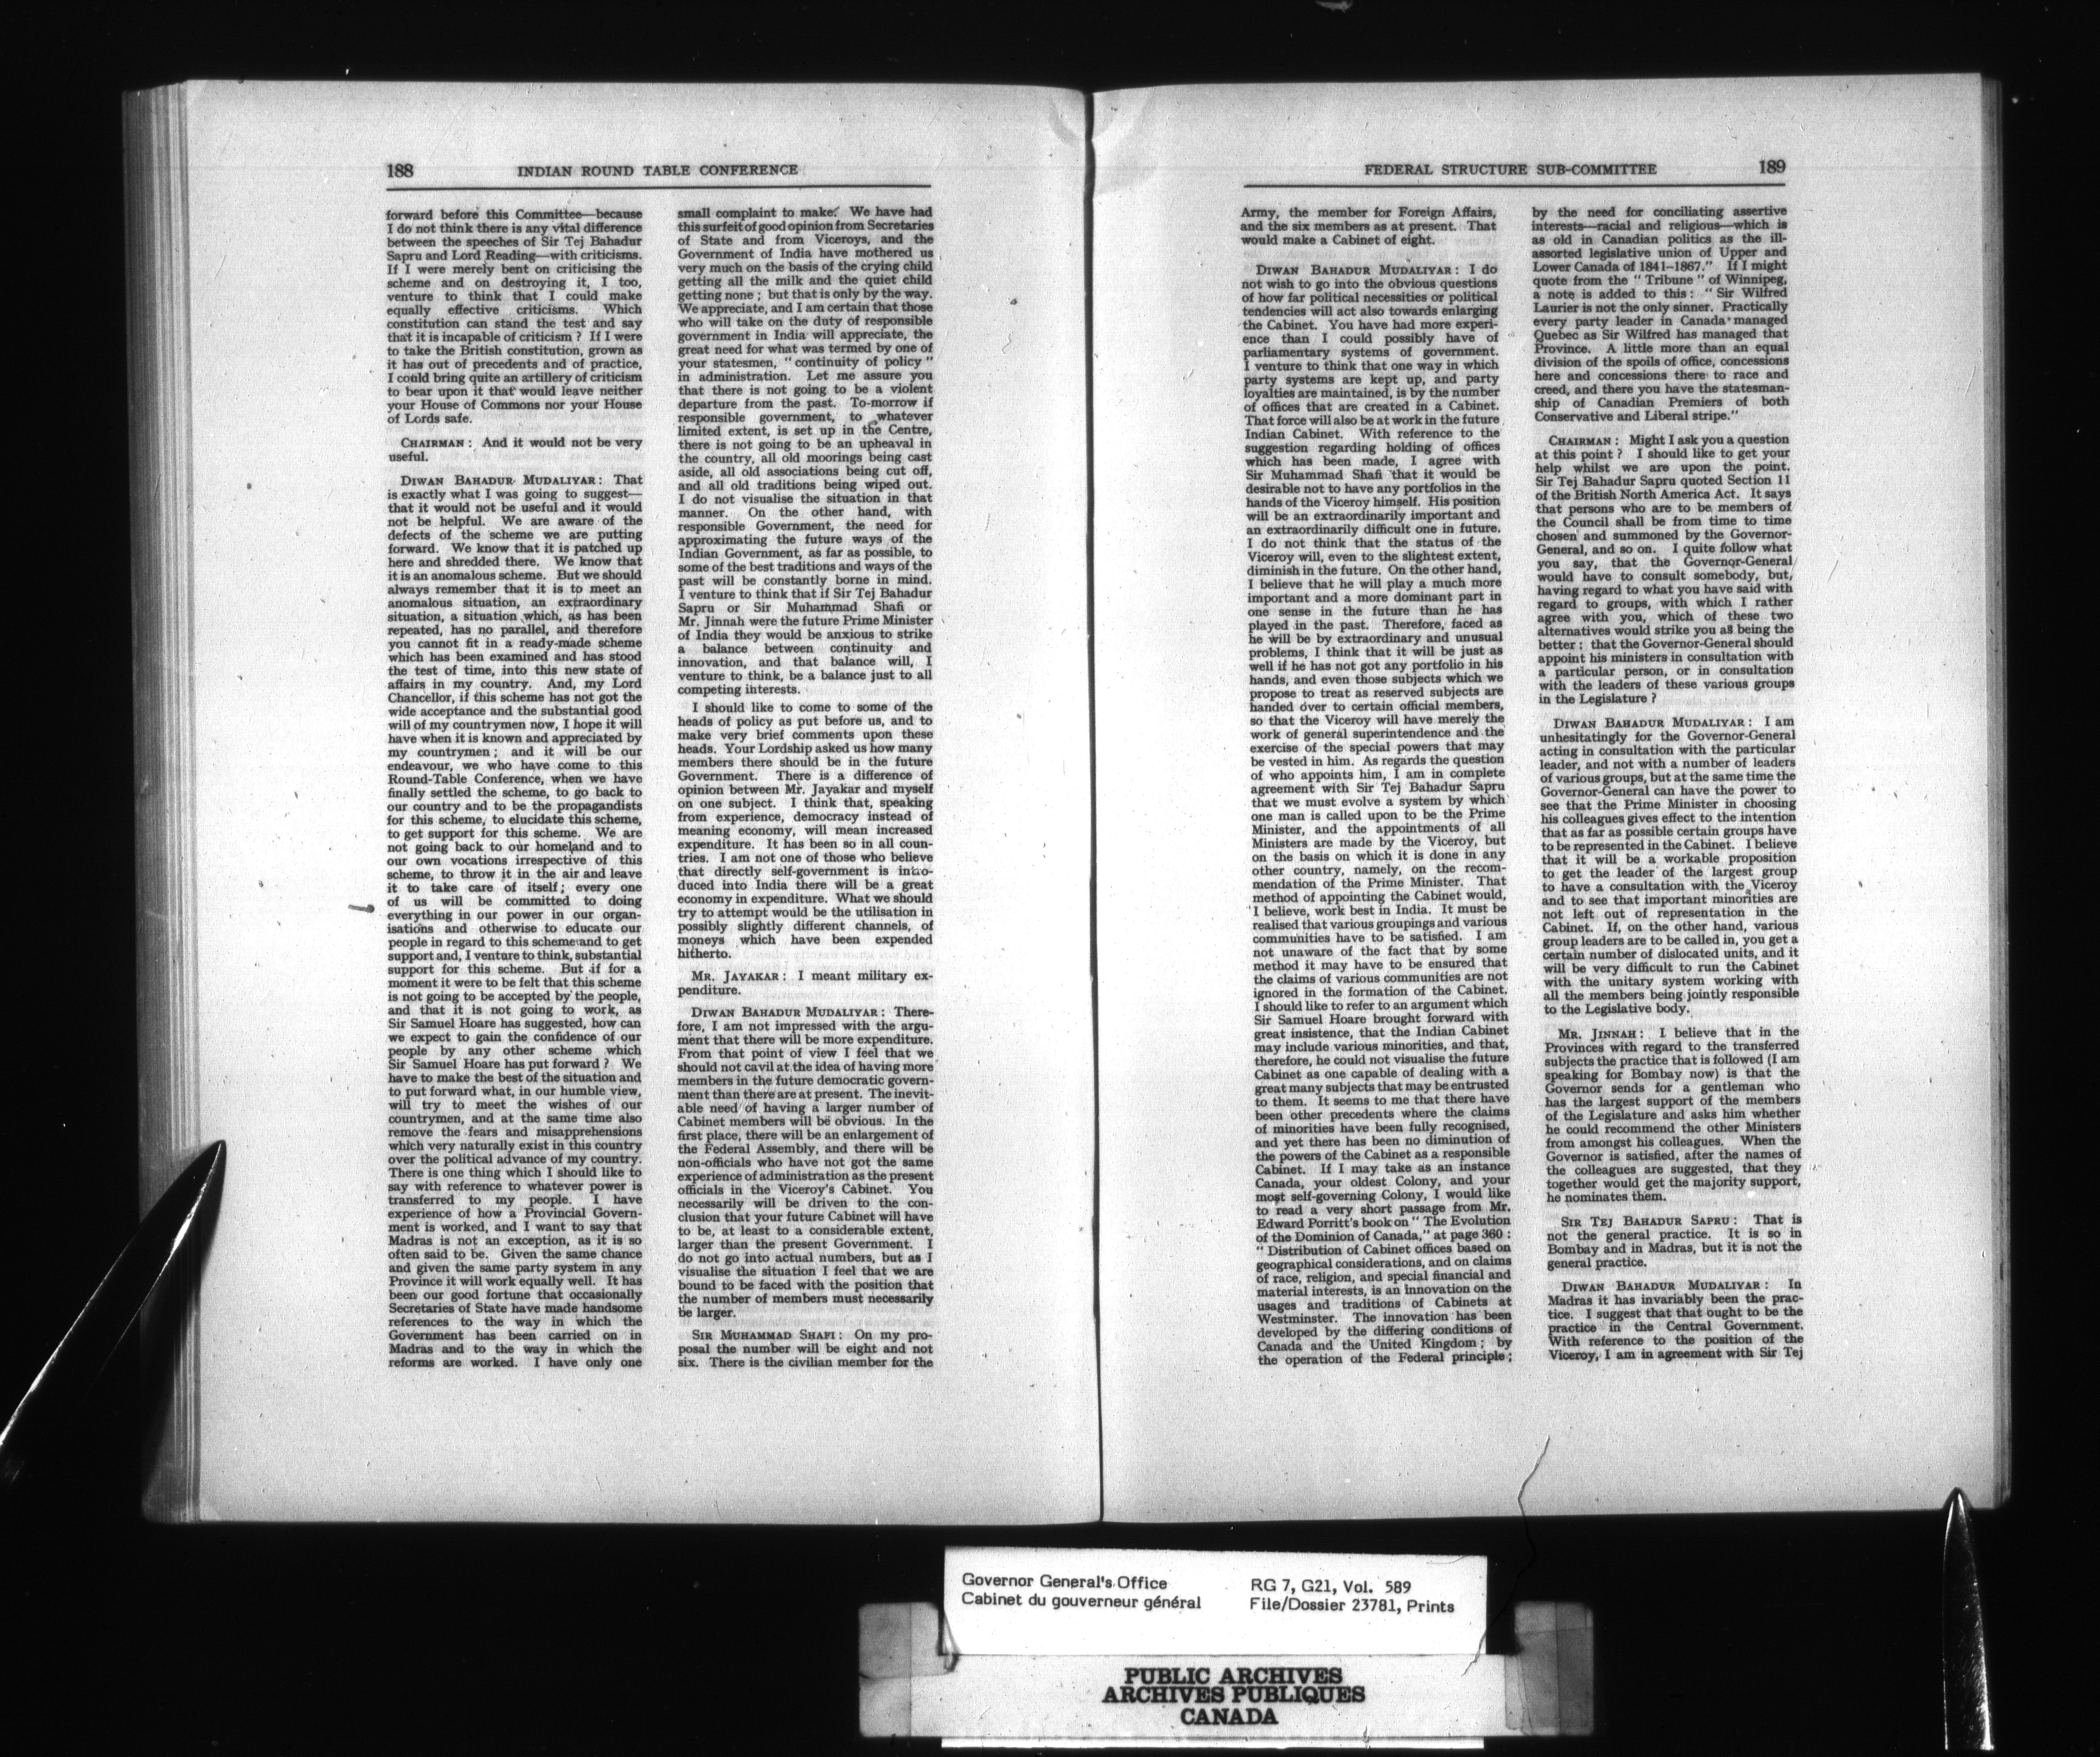 188 INDIAN ROUND TABLE CONFERENCE
forward before this Committee—because
I do not think there is any vital difference
between the speeches of Sir Tej Bahadur
Sapru and Lord Reading—with criticisms.
If I were merely bent on criticising the
scheme and on destroying it, I too,
venture to think that I could make
equally effective criticisms. Which
constitution can stand the test and say
that it is incapable of criticism ? If I were
to take the British constitution, grown as
it has out of precedents and of practice,
I could bring quite an artillery of criticism
to bear upon it that would leave neither
your House of Commons nor your House
of Lords safe.
CHAIRMAN : And it would not be very
useful.
DIWAN BAHADUR MUDALIYAR : That
is exactly what I was going to suggest—
that it would not be useful and it would
not be helpful. We are aware of the
defects of the scheme we are putting
forward. We know that it is patched up
here and shredded there. We know that
it is an anomalous scheme. But we should
always remember that it is to meet an
anomalous situation, an extraordinary
situation, a situation which, as has been
repeated, has no parallel, and therefore
you cannot fit in a ready-made scheme
which has been examined and has stood
the test of time, into this new state of
affairs in my country. And, my Lord
Chancellor, if this scheme has not got the
wide acceptance and the substantial good
will of my countrymen now, I hope it will
have when it is known and appreciated by
my countrymen ; and it will be our
endeavour, we who have come to this
Round-Table Conference, when we have
finally settled the scheme, to go back to
our country and to be the propagandists
for this scheme, to elucidate this scheme,
to get support for this scheme. We are
not going back to our homeland and to
our own vocations irrespective of this
scheme, to throw it in the air and leave
it to take care of itself ; every one
of us will be committed to doing
everything in our power in our organ-
isations and otherwise to educate our
people in regard to this scheme and to get
support and, I venture to think, substantial
support for this scheme. But if for a
moment it were to be felt that this scheme
is not going to be accepted by the people,
and that it is not going to work, as
Sir Samuel Hoare has suggested, how can
we expect to gain the confidence of our
people by any other scheme which
Sir Samuel Hoare has put forward ? We
have to make the best of the situation and
to put forward what, in our humble view,
will try to meet the wishes of our
countrymen, and at the same time also
remove the fears and misapprehensions
which very naturally exist in this country
over the political advance of my country.
There is one thing which I should like to
say with reference to whatever power is
transferred to my people. I have
experience of how a Provincial Govern-
ment is worked, and I want to say that
Madras is not an exception, as it is so
often said to be. Given the same chance
and given the same party system in any
Province it will work equally well. It has
been our good fortune that occasionally
Secretaries of State have made handsome
references to the way in which the
Government has been carried on in
Madras and to the way in which the
reforms are worked. I have only one
small complaint to make. We have had
this surfeit of good opinion from Secretaries
of State and from Viceroys, and the
Government of India have mothered us
very much on the basis of the crying child
getting all the milk and the quiet child
getting none ; but that is only by the way.
We appreciate, and I am certain that those
who will take on the duty of responsible
government in India will appreciate, the
great need for what was termed by one of
your statesmen, “ continuity of policy ”
in administration. Let me assure you
that there is not going to be a violent
departure from the past. To-morrow if
responsible government, to whatever
limited extent, is set up in the Centre,
there is not going to be an upheaval in
the country, all old moorings being cast
aside, all old associations being cut off,
and all old traditions being wiped out.
I do not visualise the situation in that
manner. On the other hand, with
responsible Government, the need for
approximating the future ways of the
Indian Government, as far as possible, to
some of the best traditions and ways of the
past will be constantly borne in mind.
I venture to think that if Sir Tej Bahadur
Sapru or Sir Muhammad Shafi or
Mr. Jinnah were the future Prime Minister
of India they would be anxious to strike
a balance between continuity and
innovation, and that balance will, I
venture to think, be a balance just to all
competing interests.
I should like to come to some of the
heads of policy as put before us, and to
make very brief comments upon these
heads. Your Lordship asked us how many
members there should be in the future
Government. There is a difference of
opinion between Mr. Jayakar and myself
on one subject. I think that, speaking
from experience, democracy instead of
meaning economy, will mean increased
expenditure. It has been so in all coun-
tries. I am not one of those who believe
that directly self-government is intro-
duced into India there will be a great
economy in expenditure. What we should
try to attempt would be the utilisation in
possibly slightly different channels, of
moneys which have been expended
hitherto.
MR. JAYAKAR : I meant military ex-
penditure.
DIWAN BAHADUR MUDALIYAR : There-
fore, I am not impressed with the argu-
ment that there will be more expenditure.
From that point of view I feel that we
should not cavil at the idea of having more
members in the future democratic govern-
ment than there are at present. The inevit-
able need of having a larger number of
Cabinet members will be obvious. In the
first place, there will be an enlargement of
the Federal Assembly, and there will be
non-officials who have not got the same
experience of administration as the present
officials in the Viceroy's Cabinet. You
necessarily will be driven to the con-
clusion that your future Cabinet will have
to be, at least to a considerable extent,
larger than the present Government. I
do not go into actual numbers, but as I
visualise the situation I feel that we are
bound to be faced with the position that
the number of members must necessarily
be larger.
SIR MUHAMMAD SHAFI : On my pro-
posal the number will be eight and not
six. There is the civilian member for the
FEDERAL STRUCTURE SUB-COMMITTEE 189
Army, the member for Foreign Affairs,
and the six members as at present. That
would make a Cabinet of eight.
DIWAN BAHADUR MUDALIYAR : I do
not wish to go into the obvious questions
of how far political necessities or political
tendencies will act also towards enlarging
the Cabinet. You have had more experi-
ence than I could possibly have of
parliamentary systems of government.
I venture to think that one way in which
party systems are kept up, and party
loyalties are maintained, is by the number
of offices that are created in a Cabinet.
That force will also be at work in the future
Indian Cabinet. With reference to the
suggestion regarding holding of offices
which has been made, I agree with
Sir Muhammad Shafi that it would be
desirable not to have any portfolios in the
hands of the Viceroy himself. His position
will be an extraordinarily important and
an extraordinarily difficult one in future.
I do not think that the status of the
Viceroy will, even to the slightest extent,
diminish in the future. On the other hand,
I believe that he will play a much more
important and a more dominant part in
one sense in the future than he has
played in the past. Therefore, faced as
he will be by extraordinary and unusual
problems, I think that it will be just as
well if he has not got any portfolio in his
hands, and even those subjects which we
propose to treat as reserved subjects are
handed over to certain official members,
so that the Viceroy will have merely the
work of general superintendence and the
exercise of the special powers that may
be vested in him. As regards the question
of who appoints him, I am in complete
agreement with Sir Tej Bahadur Sapru
that we must evolve a system by which
one man is called upon to be the Prime
Minister, and the appointments of all
Ministers are made by the Viceroy, but
on the basis on which it is done in any
other country, namely, on the recom-
mendation of the Prime Minister. That
method of appointing the Cabinet would,
I believe, work best in India. It must be
realised that various groupings and various
communities have to be satisfied. I am
not unaware of the fact that by some
method it may have to be ensured that
the claims of various communities are not
ignored in the formation of the Cabinet.
I should like to refer to an argument which
Sir Samuel Hoare brought forward with
great insistence, that the Indian Cabinet
may include various minorities, and that,
therefore, he could not visualise the future
Cabinet as one capable of dealing with a
great many subjects that may be entrusted
to them. It seems to me that there have
been other precedents where the claims
of minorities have been fully recognised,
and yet there has been no diminution of
the powers of the Cabinet as a responsible
Cabinet. If I may take as an instance
Canada, your oldest Colony, and your
most self-governing Colony, I would like
to read a very short passage from Mr.
Edward Porritt's book on “ The Evolution
of the Dominion of Canada,” at page 360 :
“ Distribution of Cabinet offices based on
geographical considerations, and on claims
of race, religion, and special financial and
material interests, is an innovation on the
usages and traditions of Cabinets at
Westminster. The innovation has been
developed by the differing conditions of
Canada and the United Kingdom ; by
the operation of the Federal principle ;
by the need for conciliating assertive
interests—racial and religious—which is
as old in Canadian politics as the ill-
assorted legislative union of Upper and
Lower Canada of 1841–1867.” If I might
quote from the “ Tribune ” of Winnipeg,
a note is added to this : “ Sir Wilfred
Laurier is not the only sinner. Practically
every party leader in Canada managed
Quebec as Sir Wilfred has managed that
Province. A little more than an equal
division of the spoils of office, concessions
here and concessions there to race and
creed, and there you have the statesman-
ship of Canadian Premiers of both
Conservative and Liberal stripe.”
CHAIRMAN : Might I ask you a question
at this point ? I should like to get your
help whilst we are upon the point.
Sir Tej Bahadur Sapru quoted Section 11
of the British North America Act. It says
that persons who are to be members of
the Council shall be from time to time
chosen and summoned by the Governor-
General, and so on. I quite follow what
you say, that the Governor-General
would have to consult somebody, but,
having regard to what you have said with
regard to groups, with which I rather
agree with you, which of these two
alternatives would strike you as being the
better : that the Governor-General should
appoint his ministers in consultation with
a particular person, or in consultation
with the leaders of these various groups
in the Legislature ?
DIWAN BAHADUR MUDALIYAR : I am
unhesitatingly for the Governor-General
acting in consultation with the particular
leader, and not with a number of leaders
of various groups, but at the same time the
Governor-General can have the power to
see that the Prime Minister in choosing
his colleagues gives effect to the intention
that as far as possible certain groups have
to be represented in the Cabinet. I believe
that it will be a workable proposition
to get the leader of the largest group
to have a consultation with the Viceroy
and to see that important minorities are
not left out of representation in the
Cabinet. If, on the other hand, various
group leaders are to be called in, you get a
certain number of dislocated units, and it
will be very difficult to run the Cabinet
with the unitary system working with
all the members being jointly responsible
to the Legislative body.
MR. JINNAH : I believe that in the
Provinces with regard to the transferred
subjects the practice that is followed (I am
speaking for Bombay now) is that the
Governor sends for a gentleman who
has the largest support of the members
of the Legislature and asks him whether
he could recommend the other Ministers
from amongst his colleagues. When the
Governor is satisfied, after the names of
the colleagues are suggested, that they
together would get the majority support,
he nominates them.
SIR TEJ BAHADUR SAPRU : That is
not the general practice. It is so in
Bombay and in Madras, but it is not the
general practice.
DIWAN BAHADUR MUDALIYAR : In
Madras it has invariably been the prac-
tice. I suggest that that ought to be the
practice in the Central Government.
With reference to the position of the
Viceroy, I am in agreement with Sir Tej
Governor General's Office RG 7, G21, Vol. 589
Cabinet du gouverneur général File/Dossier 23781, Prints
PUBLIC ARCHIVES
ARCHIVES PUBLIQUES
CANADA